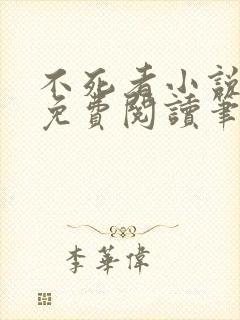 不死者小說
免費閱讀筆
李華偉